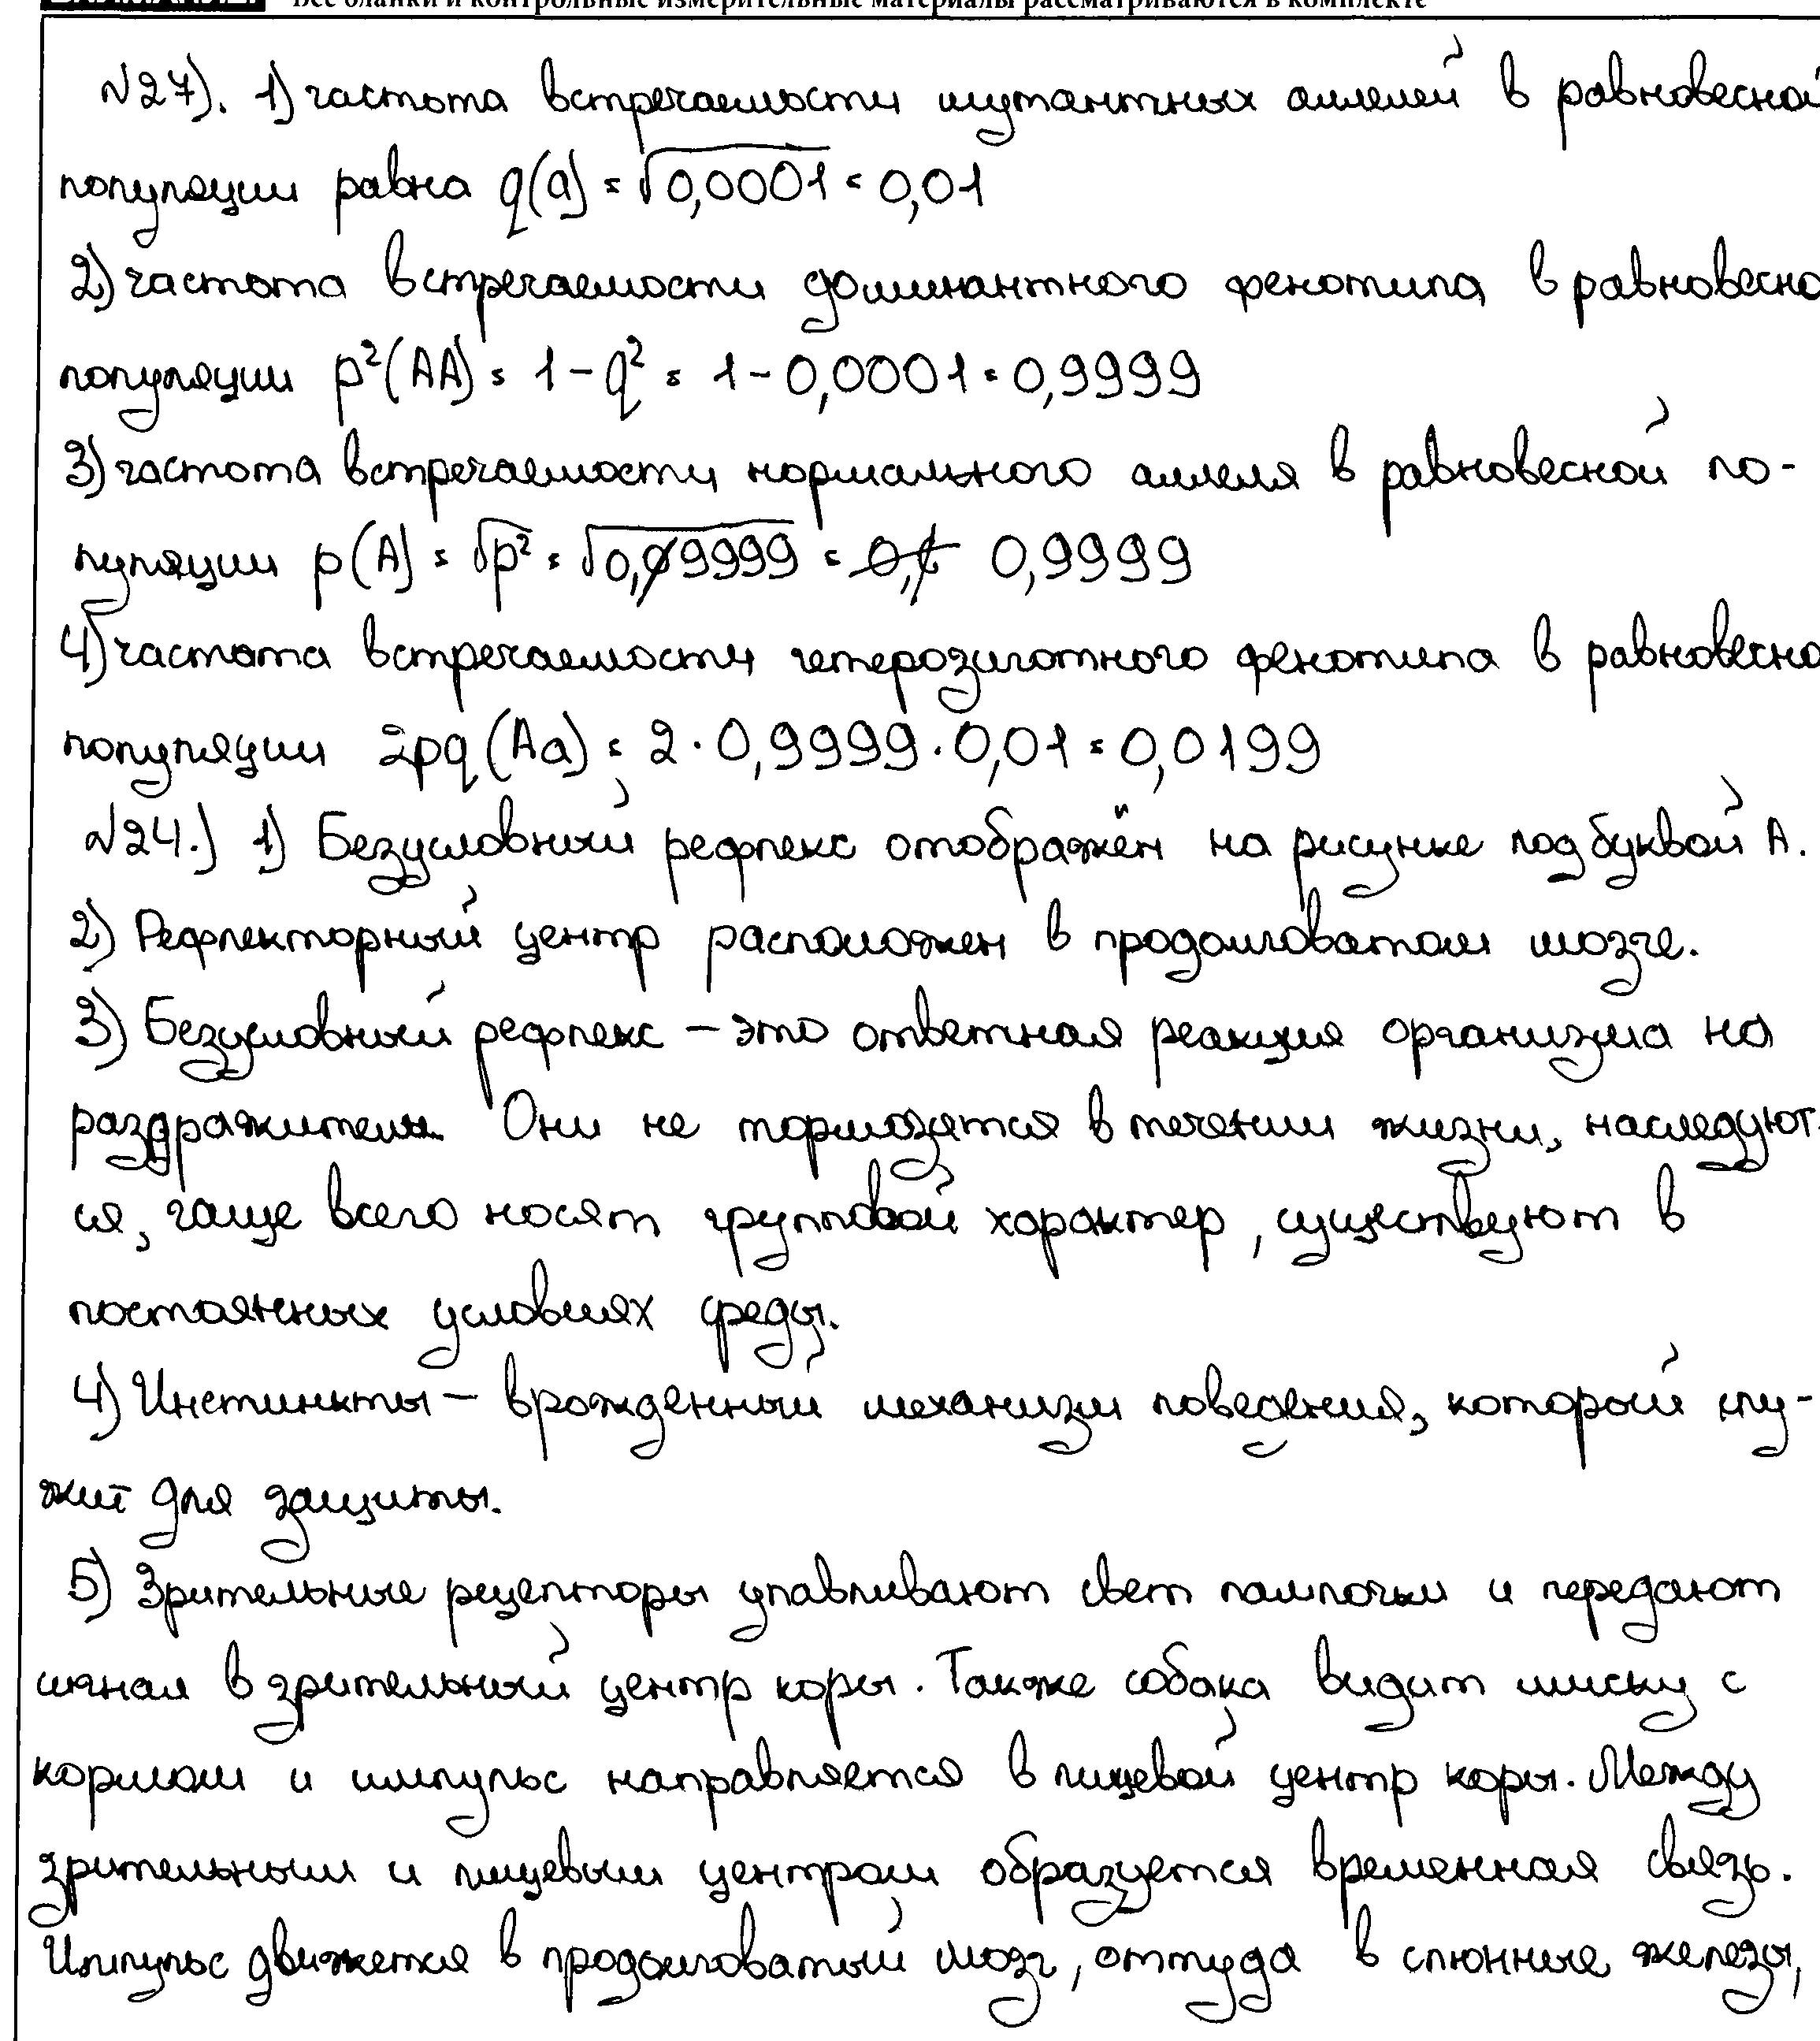 Все бланки и контрольные измерительные материалы рассматриваются в комплекте
№27). 1) частота встречаемости мутантных аллелей в равновесной
популяции равна q(a) = √0,0001 = 0,01
2) частота встречаемости доминантного фенотипа в равновесно
популяции p²(AA) = 1 - q² = 1 - 0,0001 = 0,9999
3) частота встречаемости нормального аллеля в равновесной по-
пуляции p(A) = √p² = √0,9999 = 0,9999
4) частота встречаемости гетерозиготного фенотипа в равновесно
популяции 2pq (Aa) = 2 · 0,9999 · 0,01 = 0,0199
№24.) 1) Безусловный рефлекс отображён на рисунке под буквой А.
2) Рефлекторный центр расположен в продолговатом мозге.
3) Безусловный рефлекс – это ответная реакция организма на
раздражители. Они не тормозятся в течении жизни, наследуют-
ся, чаще всего носят групповой характер, существуют в
постоянных условиях среды.
4) Инстинкты – врожденный механизм поведения, который слу-
жит для защиты.
5) Зрительные рецепторы улавливают свет лампочки и передают
сигнал в зрительный центр коры. Также собака видит миску с
кормом и импульс направляется в пищевой центр коры. Между
зрительным и пищевым центром образуется временная связь.
Импульс движется в продолговатый мозг, оттуда в слюнные железы,